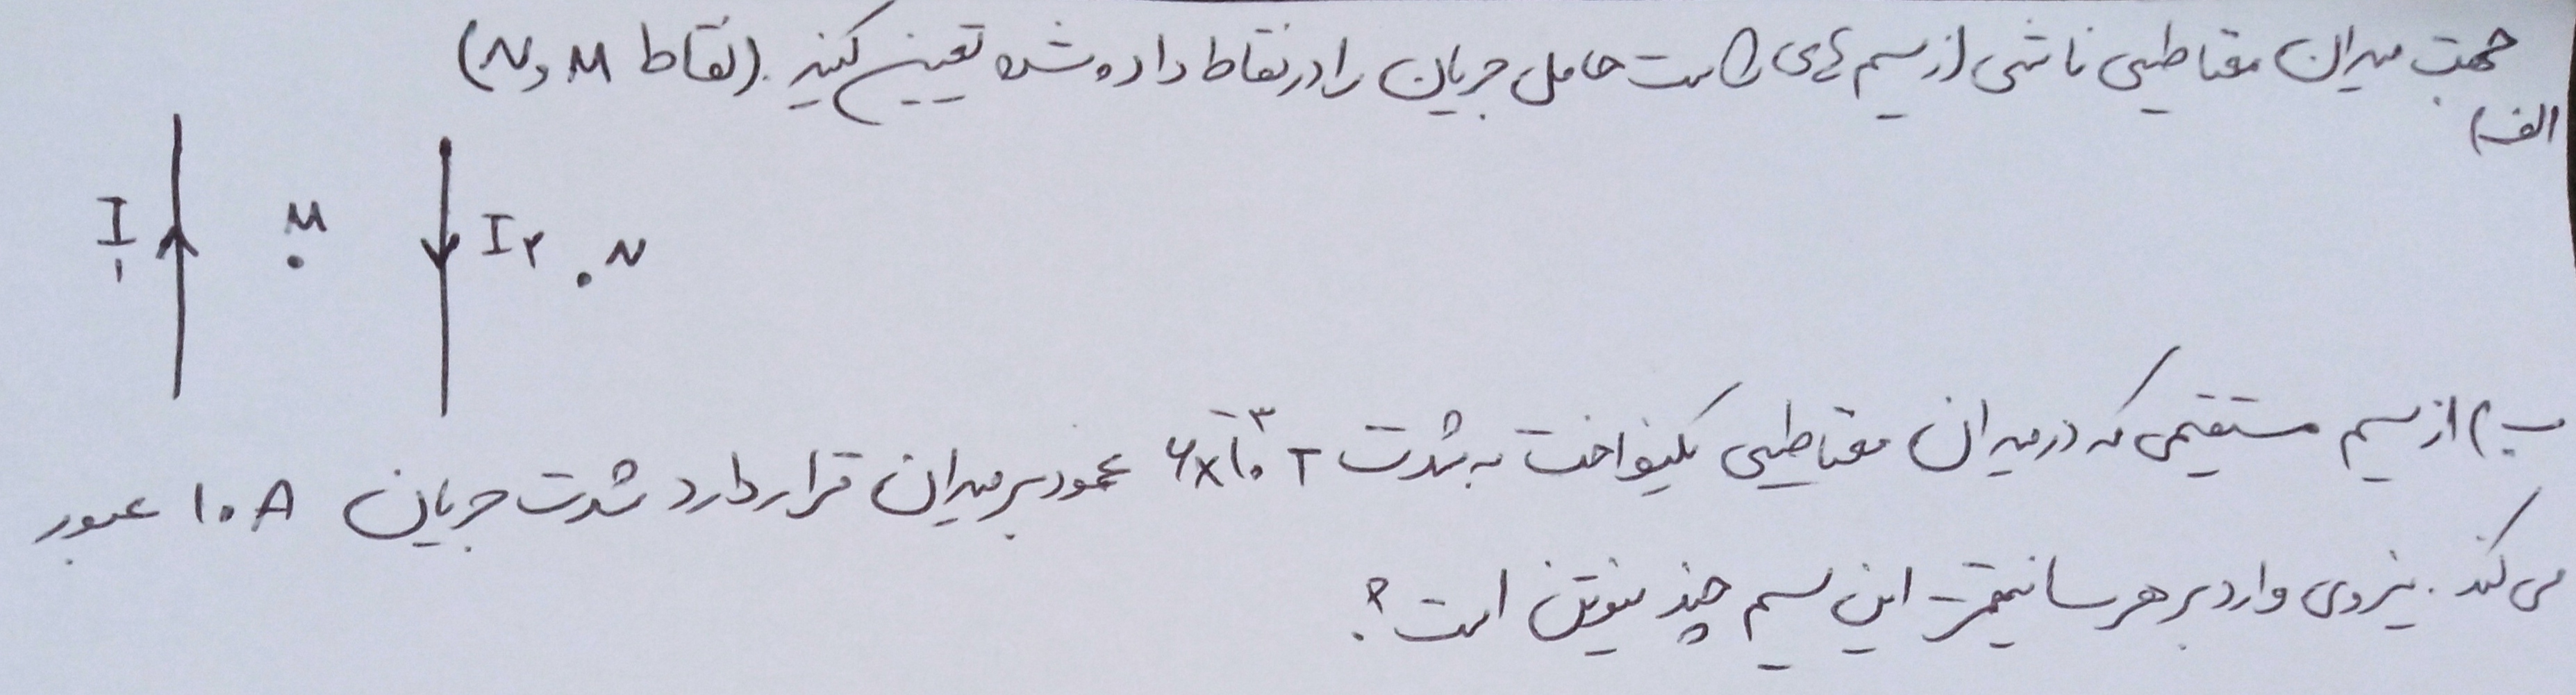 جهت میدان مغناطیسی ناشی از سیم های راست حامل جریان را در نقاط داده شده تعیین کنید. (نقاط M و N)
الف)
I₁ M I₂ N
ب) از سیم مستقیمی که در میدان مغناطیسی یکنواخت به شدت ۶×۱۰⁻³ T عمود بر میدان قرار دارد شدت جریان ۱۰ A عبور
می کند. نیروی وارد بر هر سانتیمتر این سیم چند نیوتن است؟